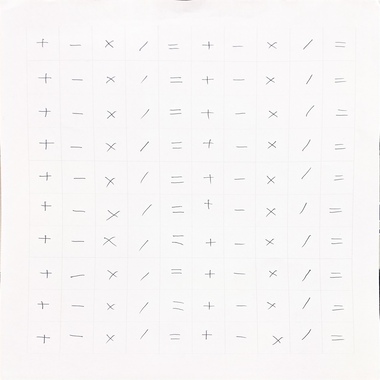 + − × / = + − × / =
+ − × / = + − × / =
+ − × / = + − × / =
+ − × / = + − × / =
+ − × / = + − × / =
+ − × / = + − × / =
+ − × / = + − × / =
+ − × / = + − × / =
+ − × / = + − × / =
+ − × / = + − × / =